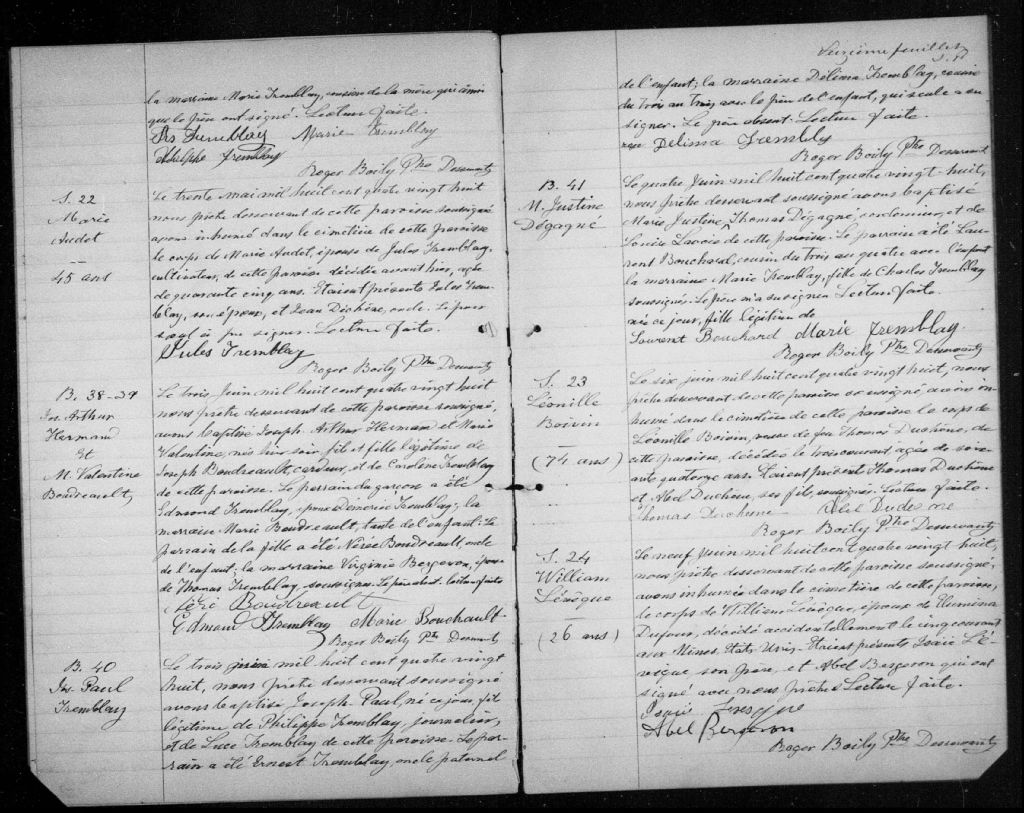 la marraine Marie Tremblay, cousine de la mère qui ainsi
que le père ont signé. Lecture faite.
Ths Tremblay Marie Tremblay
Adelphe Tremblay
Roger Boily Ptre Desservant
S. 22
Marie
Audet
—
45 ans
Le trente mai mil huit cent quatre vingt huit
nous prêtre desservant de cette paroisse soussigné
avons inhumé dans le cimetière de cette paroisse
le corps de Marie Audet, épouse de Jules Tremblay,
cultivateur, de cette paroisse décédée avant hier, agée
de quarante cinq ans. Etaient présents Jules Trem-
blay, son époux, et Jean Dechène, oncle. Le
signer. Lecture faite.
Jules Tremblay
Roger Boily Ptre Desservant
B. 38-39
Jos. Arthur
Hermand
Et
M. Valentine
Boudreault
Le trois Juin mil huit cent quatre vingt huit
nous prêtre desservant de cette paroisse soussigné,
avons baptisé Joseph Arthur Hermand et Marie
Valentine, nés hier soir, fils et fille légitime de
Joseph Boudreault, cardeur, et de Caroline Tremblay
de cette paroisse. Le parrain du garçon a été
Edmond Tremblay, époux Démerise Tremblay; la
marraine Marie Boudreault, tante de l'enfant. Le
parrain de la fille a été Nérée Boudreault, oncle
de l'enfant; la marraine Virginie Bergeron, épouse
de Thomas Tremblay soussignés. Le père absent. Lecture faite
Néré Boudreault
Edmond Tremblay Marie Bouchault
Roger Boily Ptre Desservant
B. 40
Jos. Paul
Tremblay
Le trois juin mil huit cent quatre vingt
huit, nous prêtre desservant soussigné
avons baptisé Joseph Paul, né ce jour, fils
légitime de Philippe Tremblay, journalier,
et de Luce Tremblay de cette paroisse. Le par-
rain a été Ernest Tremblay, oncle paternel
Seizième feuillet
de l'enfant; la marraine Délima Tremblay, cousine
du trois au trois avec le père de l'enfant, qui seule a su
signer. Le père absent. Lecture faite.
Delima Trembly
Roger Boily Ptre Desservant
B. 41
M. Justine
Dégagné
Le quatre Juin mil huit cent quatre vingt-huit,
nous prêtre desservant soussigné avons baptisé
Marie Justine, Thomas Dégagné, cordonnier, et de
Louise Lavoie de cette paroisse. Le parrain a été Lau-
rent Bouchard, cousin du trois au quatre avec l'enfant
la marraine Marie Tremblay, fille de Charles Tremblay
soussignés. Le père n'a su signer Lecture faite.
née ce jour, fille légitime de
Laurent Bouchard Marie Tremblay.
Roger Boily Ptre Desservant
S. 23
Léonille
Boivin
—
(74 ans)
Le six juin mil huit cent quatre vingt huit, nous
prêtre desservant de cette paroisse soussigné avons in-
humé dans le cimetière de cette paroisse le corps de
Léonille Boivin, veuve de feu Thomas Duchêne, de
cette paroisse, décédée le trois courant agée de soix-
ante quatorze ans. Etaient présents Thomas Duchêne
et Abel Duchêne, ses fils, soussignés. Lecture faite.
Thomas Duchene Abel Duchene
Roger Boily Ptre Desservant
S. 24
William
Lévêque
—
(26 ans)
Le neuf Juin mil huit cent quatre vingt huit,
nous prêtre desservant de cette paroisse soussigné,
avons inhumé dans le cimetière de cette paroisse,
le corps de William Lévêque, époux de Elumina
Dufour, décédé accidentellement le cinq courant
aux Mines, Etats-Unis. Etaient présents Isaïe Lé-
vêque son père, et Abel Bergeron qui ont
signé avec nous prêtre Lecture faite.
Isaïe
Abel Bergeron
Roger Boily Ptre Desservant